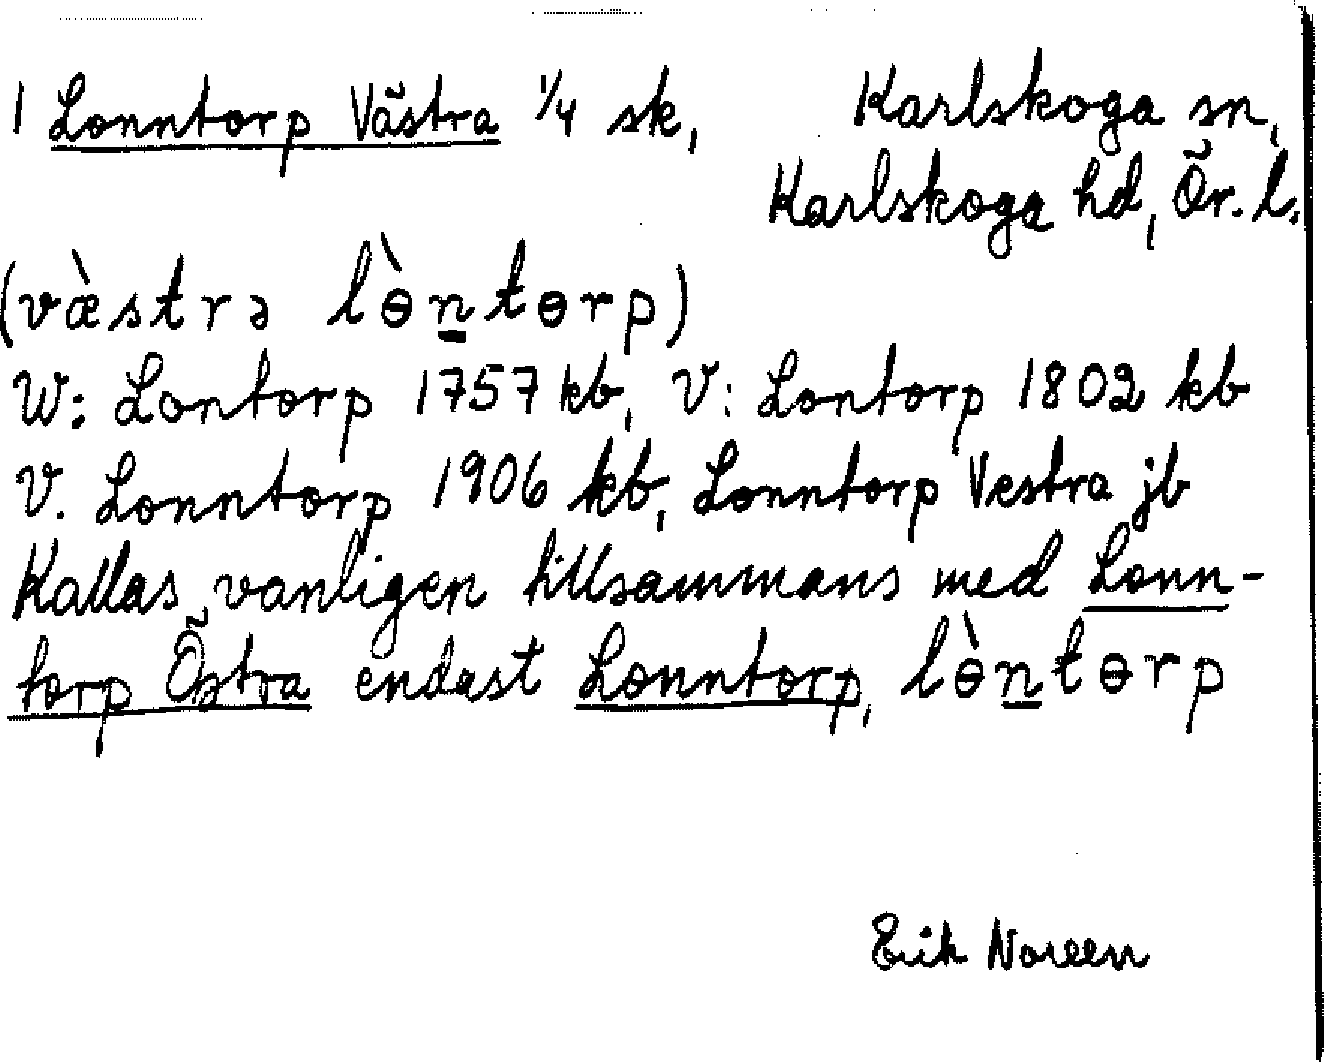 1 Lonntorp Västra 1/4 sk, Karlskoga sn,
Karlskoga hd, Ör. l.
(væ̀strə lɵ̀n̲tɵrp)
W: Lontorp 1757 kb, V: Lontorp 1802 kb
V. Lonntorp 1906 kb, Lonntorp Vestra jb
Kallas vanligen tillsammans med Lonn-
torp Östra endast Lonntorp, lɵ̀n̲tɵrp
Erik Noreen